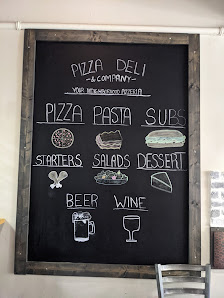 PIZZA DELI
-& COMPANY-
YOUR NEIGHBORHOOD PIZZERIA
PIZZA PASTA SUBS
STARTERS SALADS DESSERT
BEER WINE